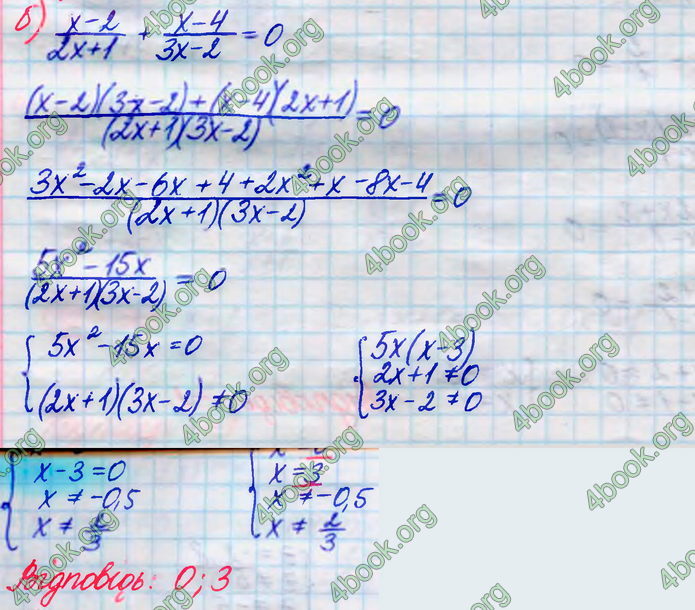 б) (x-2)/(2x+1) + (x-4)/(3x-2) = 0
((x-2)(3x-2)+(x-4)(2x+1))/((2x+1)(3x-2)) = 0
(3x²-2x-6x+4+2x²+x-8x-4)/((2x+1)(3x-2)) = 0
(5x²-15x)/((2x+1)(3x-2)) = 0
{ 5x²-15x=0
(2x+1)(3x-2)≠0
{ 5x(x-3)
2x+1≠0
3x-2≠0
{ x-3=0
x≠-0,5
x≠2/3
{ x=3
x≠-0,5
x≠2/3
Відповідь: 0; 3
4book.org